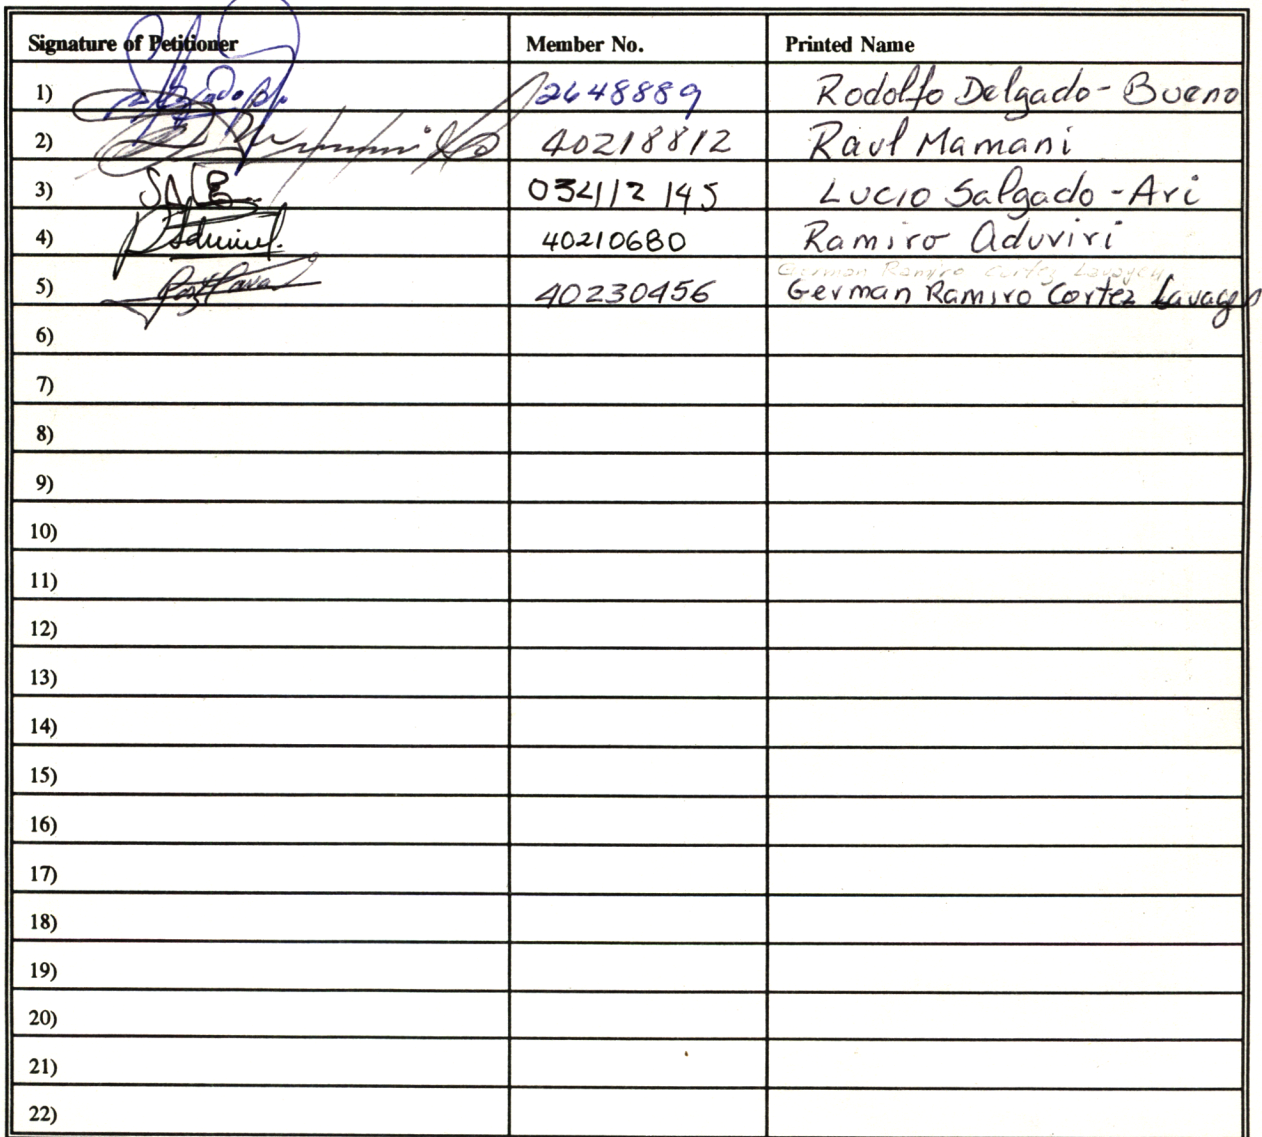 Signature of Petitioner Member No. Printed Name
1) 2648889 Rodolfo Delgado-Bueno
2) 40218812 Raul Mamani
3) 034112145 Lucio Salgado-Ari
4) 40210680 Ramiro Aduviri
German Ramiro Cortez Lavayen
5) 40230456 German Ramiro Cortez Lavayen
6)
7)
8)
9)
10)
11)
12)
13)
14)
15)
16)
17)
18)
19)
20)
21)
22)